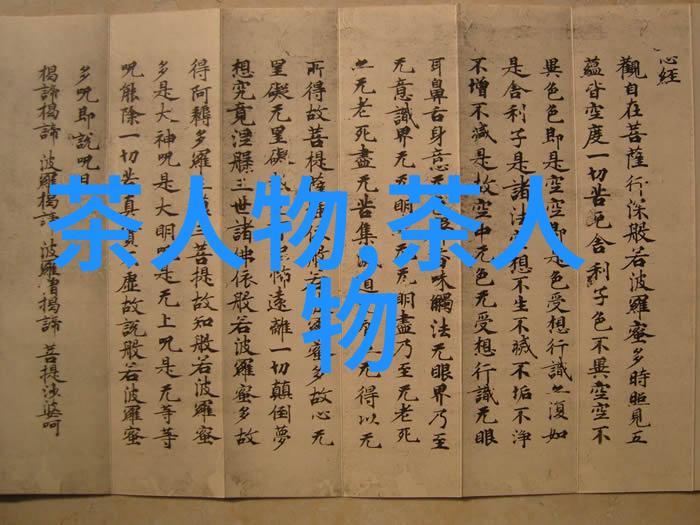 茶人物,茶人
物
心经
觀自在菩薩行深般若波羅蜜多時照見五
蘊皆空度一切苦厄舍利子色不異空空不
異色色即是空空即是色受想行識亦復如
是舍利子是諸法想不生不滅不垢不淨
不增不減是故空中无色无受想行識无眼
耳鼻舌身意无香味觸法无眼界乃至
无意識界无无明无明盡乃至无老死
亦无老死盡无苦集滅道无得以无
所得故菩提薩依般若波羅蜜多故心无
罣礙无罣礙恐怖遠離一切顛倒夢
想究竟涅槃三世諸佛依般若波羅蜜多故
得阿耨多羅三菩提故知般若波羅蜜
多是大神咒是大明咒是无上咒是无等等
咒能除一切苦真實虛故說般若波羅蜜
多咒即說咒曰
揭諦揭諦 波羅揭諦 波羅僧揭諦 菩提沙婆呵